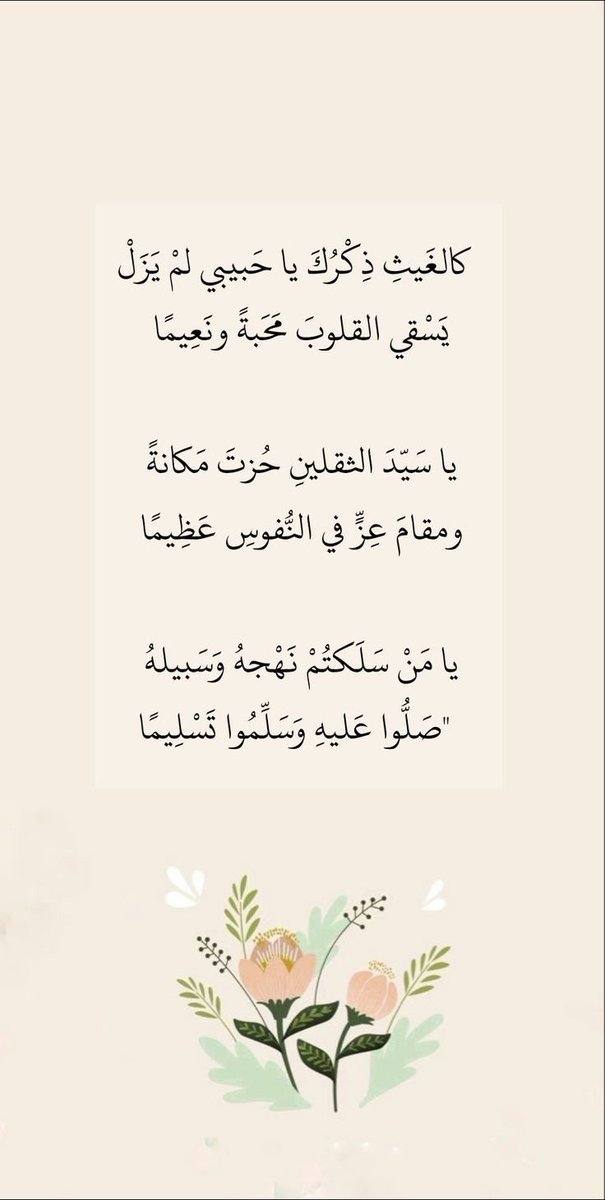 كالغَيثِ ذِكْرُكَ يا حَبيبي لمْ يَزَلْ
يَسْقي القلوبَ مَحَبةً ونَعِيمًا
يا سَيّدَ الثقلينِ حُزتَ مَكانةً
ومقامَ عِزٍّ في النُّفوسِ عَظِيمًا
يا مَنْ سَلَكتُمْ نَهْجهُ وَسَبيلهُ
"صَلُّوا عَليهِ وَسَلِّمُوا تَسْلِيمًا